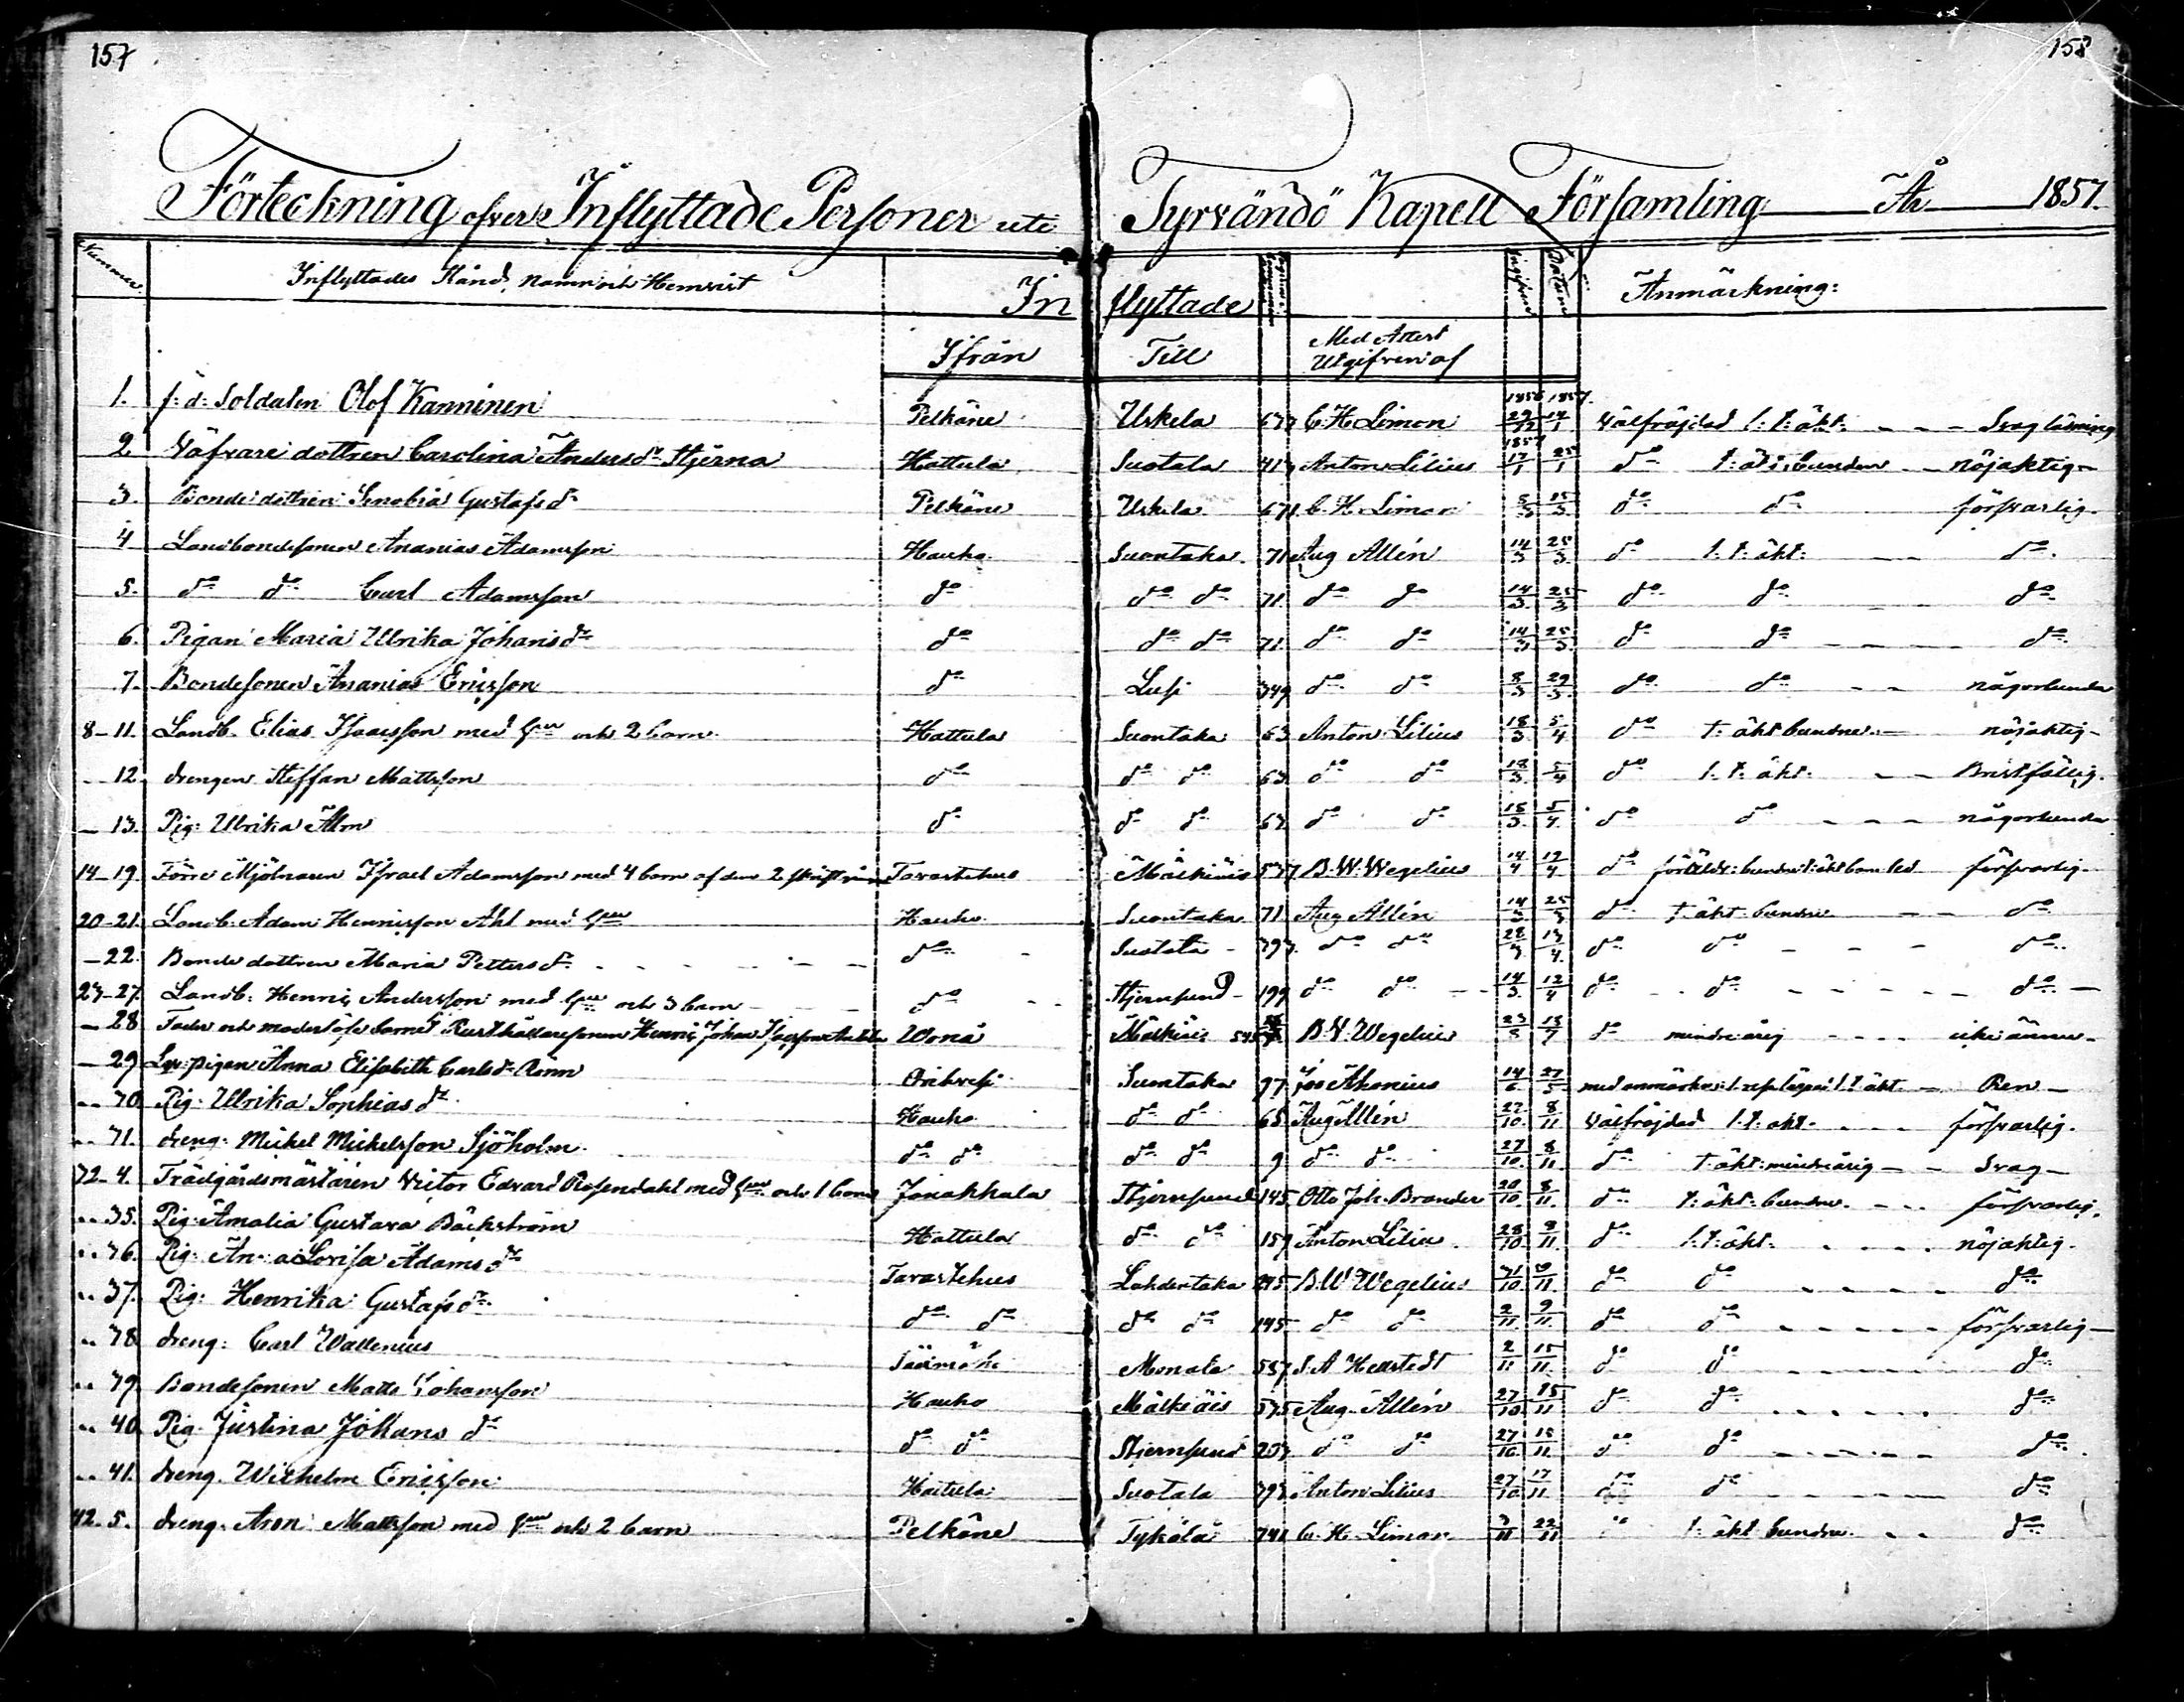 157
158
Förteckning öfver Inflyttade Personer uti Tyrvändö Kapell Församling År 1857.
Nummer Inflyttades Stånd, namn och Hemvist In flyttade Anmärkning:
Ifrån Till Med Attest Utgifven af
1856 1857.
1. f: d: Soldaten Olof Kanninen Pelkäne Uskela 677 C. H. Limon 29/12 14/1 Välfräjdad l: t: äkt: Svag läsning
1857
2. Väfvare dottren Carolina Andersdr Stjerna Hattula Suotala 417 Anton Lilius 17/1 25/1 do t: äkt: bunden nöjaktig
3. Bonde dottren Senobia Gustafsdr Pelkäne Uskela 671 C. H. Limon 5/3 15/3 do do försvarlig
4 Landbondesonen Ananias Adamsson Hauho Suontaka 71 Aug Allén 14/3 25/3 do l: t: äkt: do
5. do do Carl Adamsson do do do 71 do do 14/3 25/3 do do do
6. Pigan Maria Ulrika Johansdr do do do 71 do do 14/3 25/3 do do do
7. Bondesonen Ananias Ericsson do Lusi 349 do do 8/3 29/3 do do någorlunda
8-11. Landb. Elias Isaacsson med hu och 2 barn Hattula Suontaka 63 Anton Lilius 18/3 5/4 do t: äkt bundne nöjaktig
12. drengen Steffan Mattsson do do do 63 do do 18/3 5/4 do l: t: äkt: Bristfällig
13. Pig: Ulrika Alm do do do 63 do do 18/3 5/4 do do någorlunda
14-19. Förre Mjölnaren Israel Adamsson med 4 barn af dem 2 Tavastehus Mälkiäis 577 B. W. Wegelius 14/4 19/4 do försvarlig
20-21. Landb. Adam Henricsson Ahl med hu Hauho Suontaka 71 Aug Allén 14/3 25/3 do t: äkt bundne do
22. Bonde dottren Maria Pettersdr do Suotala 397 do do 28/3 13/4 do do do
23-27. Landb: Henric Andersson med hu och 3 barn do Stjernsund 199 do do 14/3 12/4 do do do
28. Fader och moderlösa barnet Rusthållaresonen Henric Johan Wonå Mälkiäis B. W. Wegelius 23/8 13/7 do minderårig icke ännu
29 pigan Anna Elisabeth Carlsdr Orihvesi Suontaka 97 Jos Ahonius 14/6 27/5 Ren
30 Pig: Ulrika Sophiasdr Hauho do do 65 Aug Allén 27/10 8/11 Välfräjdad l: t: äkt. försvarlig.
31. dreng: Mickel Mickelsson Sjöholm do do do do 9 do do 27/10 8/11 do t: äkt: minderårig Svag
32-4. Trädgårdsmästaren Victor Edvard Rosendahl med hu och 1 barn Janakkala Stjernsund 145 Otto Joh. Brander 20/10 8/11 do t: äkt: bundne. försvarlig.
35. Pig: Amalia Gustava Bäckström Hattula do do 159 Anton Lilius 28/10 8/11 do l: t: äkt: nöjaktig
36. Pig: Anna Lovisa Adamsdr Tavastehus Lahdentaka 245 B. W. Wegelius 31/10 do do do
37. Pig: Henrika Gustafsdr do do do do 145 do do 2/11 9/11 do do försvarlig
38 dreng: Carl Wallenius Säämäki Monala 557 S. A. Hellstedt 2/11 15/11 do do do
39 Bondesonen Matts Johansson Hauho Mälkiäis 575 Aug. Allén 27/10 15/11 do do do
40. Pig. Justina Johansdr do do Stjernsund 207 do do 27/10 15/11 do do do
41. dreng. Wilhelm Ericsson Hattula Suotala 393 Anton Lilius 27/10 17/11 do do do
42-5. dreng. Aron Mattsson med hu och 2 barn Pelkäne Tykölä 741 C. H. Limon 3/11 22/11 t: äkt bundne do